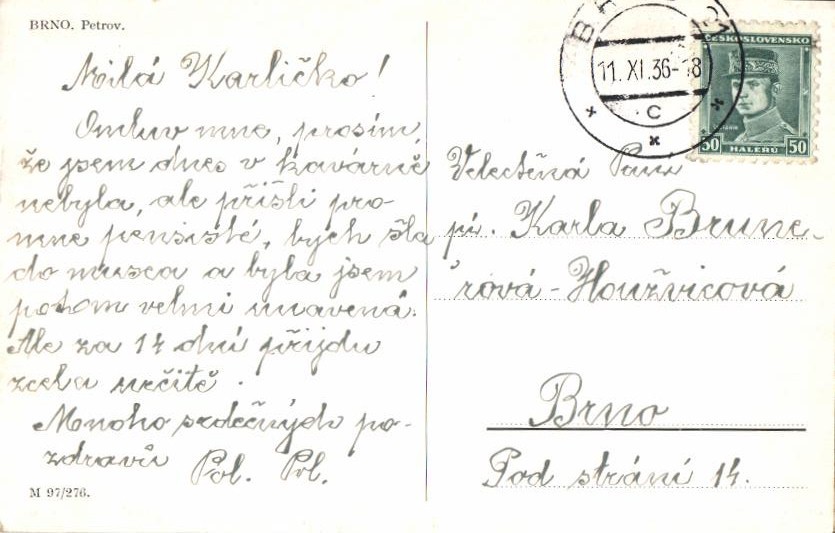 BRNO. Petrov.
Milá Karličko!
Omluv mne, prosím,
že jsem dnes v kavárně
nebyla, ale přišli pro
mne pensisté, bych šla
do musea a byla jsem
potom velmi unavená.
Ale za 14 dní přijdu
zcela určitě.
Mnoho srdečných po-
zdravů Pol. Pol.
M 97/276.
BRNO 2
11. XI. 36-18
C
ČESKOSLOVENSKO
50 HALÉŘŮ 50
Velectěná Paní
pí. Karla Brune-
rová-Houžvicová
Brno
Pod strání 14.